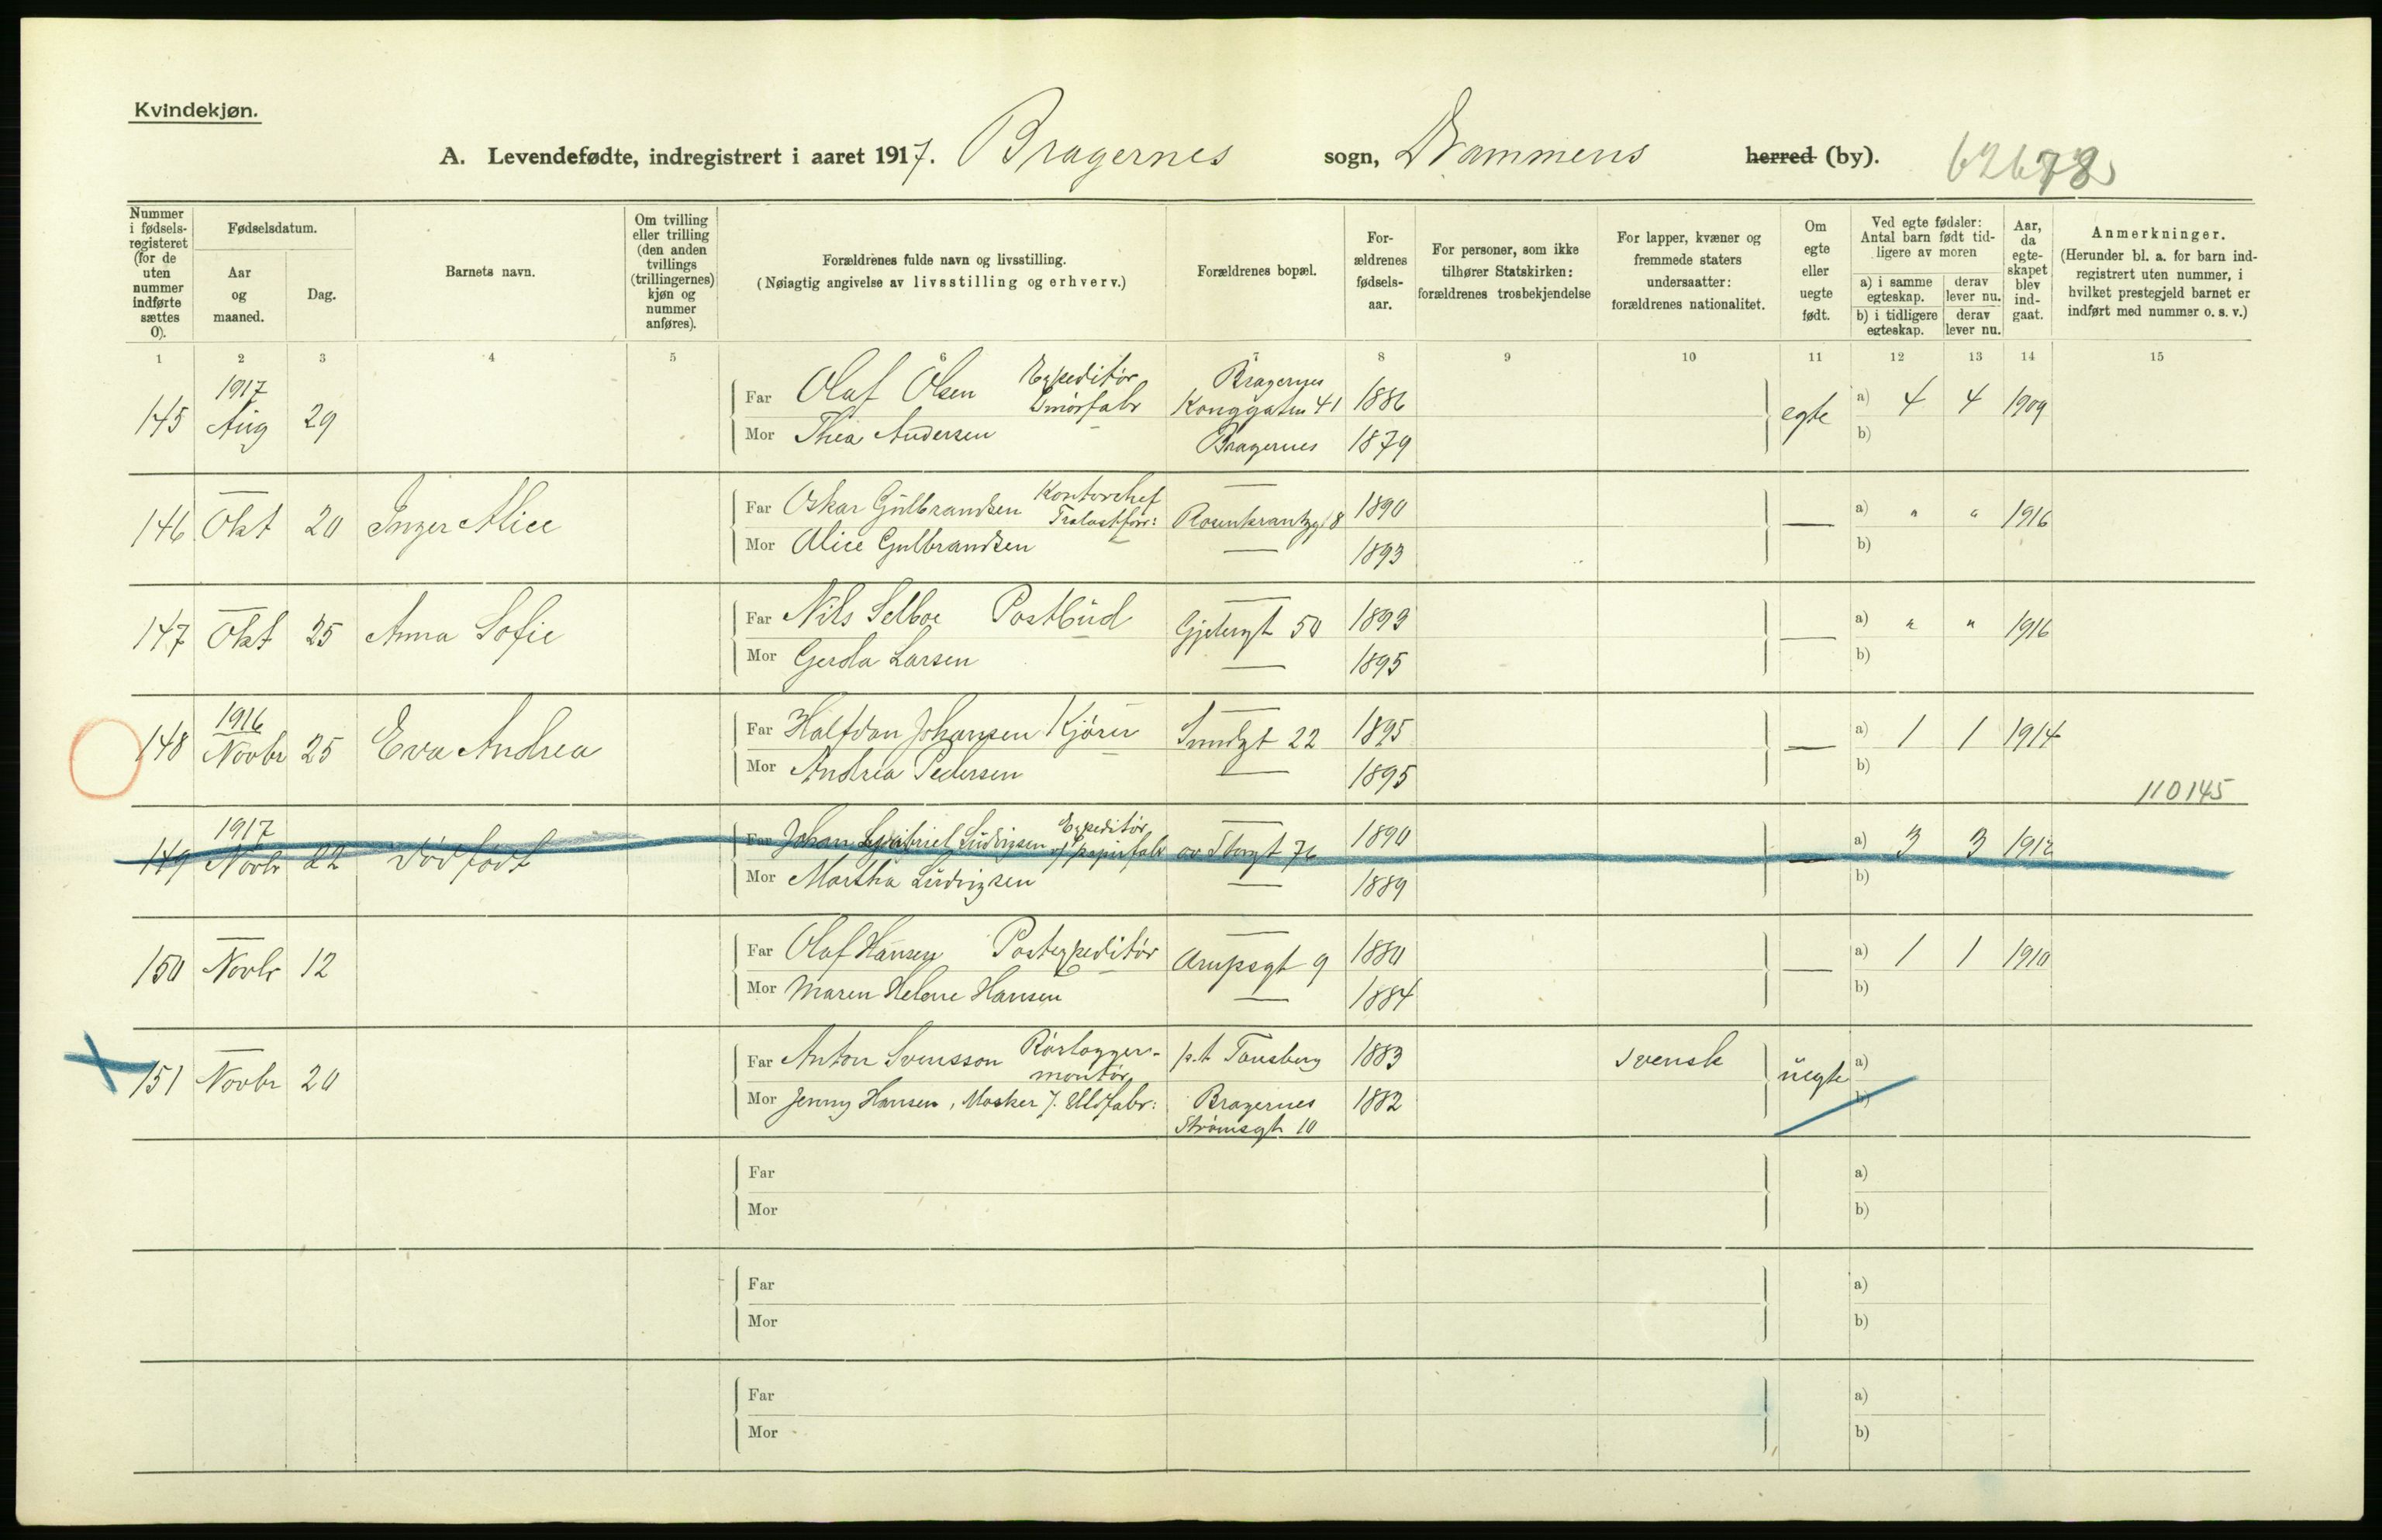 Kvindekjøn.
A. Levendefødte, indregistrert i aaret 1917. Bragernes sogn, Drammens herred (by).
Nummer i fødselsregisteret (for de uten nummer indførte sættes 0).
Fødselsdatum.
Aar og maaned.
Dag.
Barnets navn.
Om tvilling eller trilling (den anden tvillings (trillingernes) kjøn og nummer anføres).
Forældrenes fulde navn og livsstilling.
(Nøiagtig angivelse av livsstilling og erhverv.)
Forældrenes bopæl.
Forældrenes fødselsaar.
For personer, som ikke tilhører Statskirken: forældrenes trosbekjendelse
For lapper, kvæner og fremmede staters undersaatter: forældrenes nationalitet.
Om egte eller uegte født.
Ved egte fødsler: Antal barn født tidligere av moren
a) i samme egteskap. derav lever nu.
b) i tidligere egteskap. derav lever nu.
Aar, da egteskapet blev indgaat.
Anmerkninger.
(Herunder bl. a. for barn indregistrert uten nummer, i hvilket prestegjeld barnet er indført med nummer o. s. v.)
1 2 3 4 5 6 7 8 9 10 11 12 13 14 15
1917 Expeditör Bragernes
145 Aug 29 Far Olaf Olsen Smörfabr Konggaten 41 1886 egte a) 4 4 1909
Mor Thea Andersen Bragernes 1879 b)
— Kontorchef —
146 Okt 20 Inger Alice Far Oskar Gulbrandsen Trelastforr: Rosenkrantzgt 8 1890 — a) " " 1916
Mor Alice Gulbrandsen — 1893 b)
147 Okt 25 Anna Sofie Far Nils Selboe Postbud Gjetergt 50 1893 — a) " " 1916
Mor Gerda Larsen — 1895 b)
1916
148 Novbr 25 Eva Andrea Far Halfdan Johansen Kjörer Sundgt 22 1895 — a) 1 1 1914
Mor Andrea Pedersen — 1895 b)
110145
1917 Expeditör
149 Novbr 22 Dödfödt Far Johan Gabriel Ludvigsen v/ papirfabr öv Storgt 76 1890 — a) 3 3 1912
Mor Martha Ludvigsen — 1889 b)
150 Novbr 12 Far Olaf Hansen Postexpeditör Arupsgt 9 1880 — a) 1 1 1910
Mor Maren Helene Hansen — 1884 b)
151 Novbr 20 Far Anton Svensson Rörlæggermontör p.t Tönsberg 1883 svensk uegte a)
Mor Jenny Hansen, Uldfabr: Bragernes 1882 b)
Strömsgt 10
Far a)
Mor b)
Far a)
Mor b)
Far a)
Mor b)